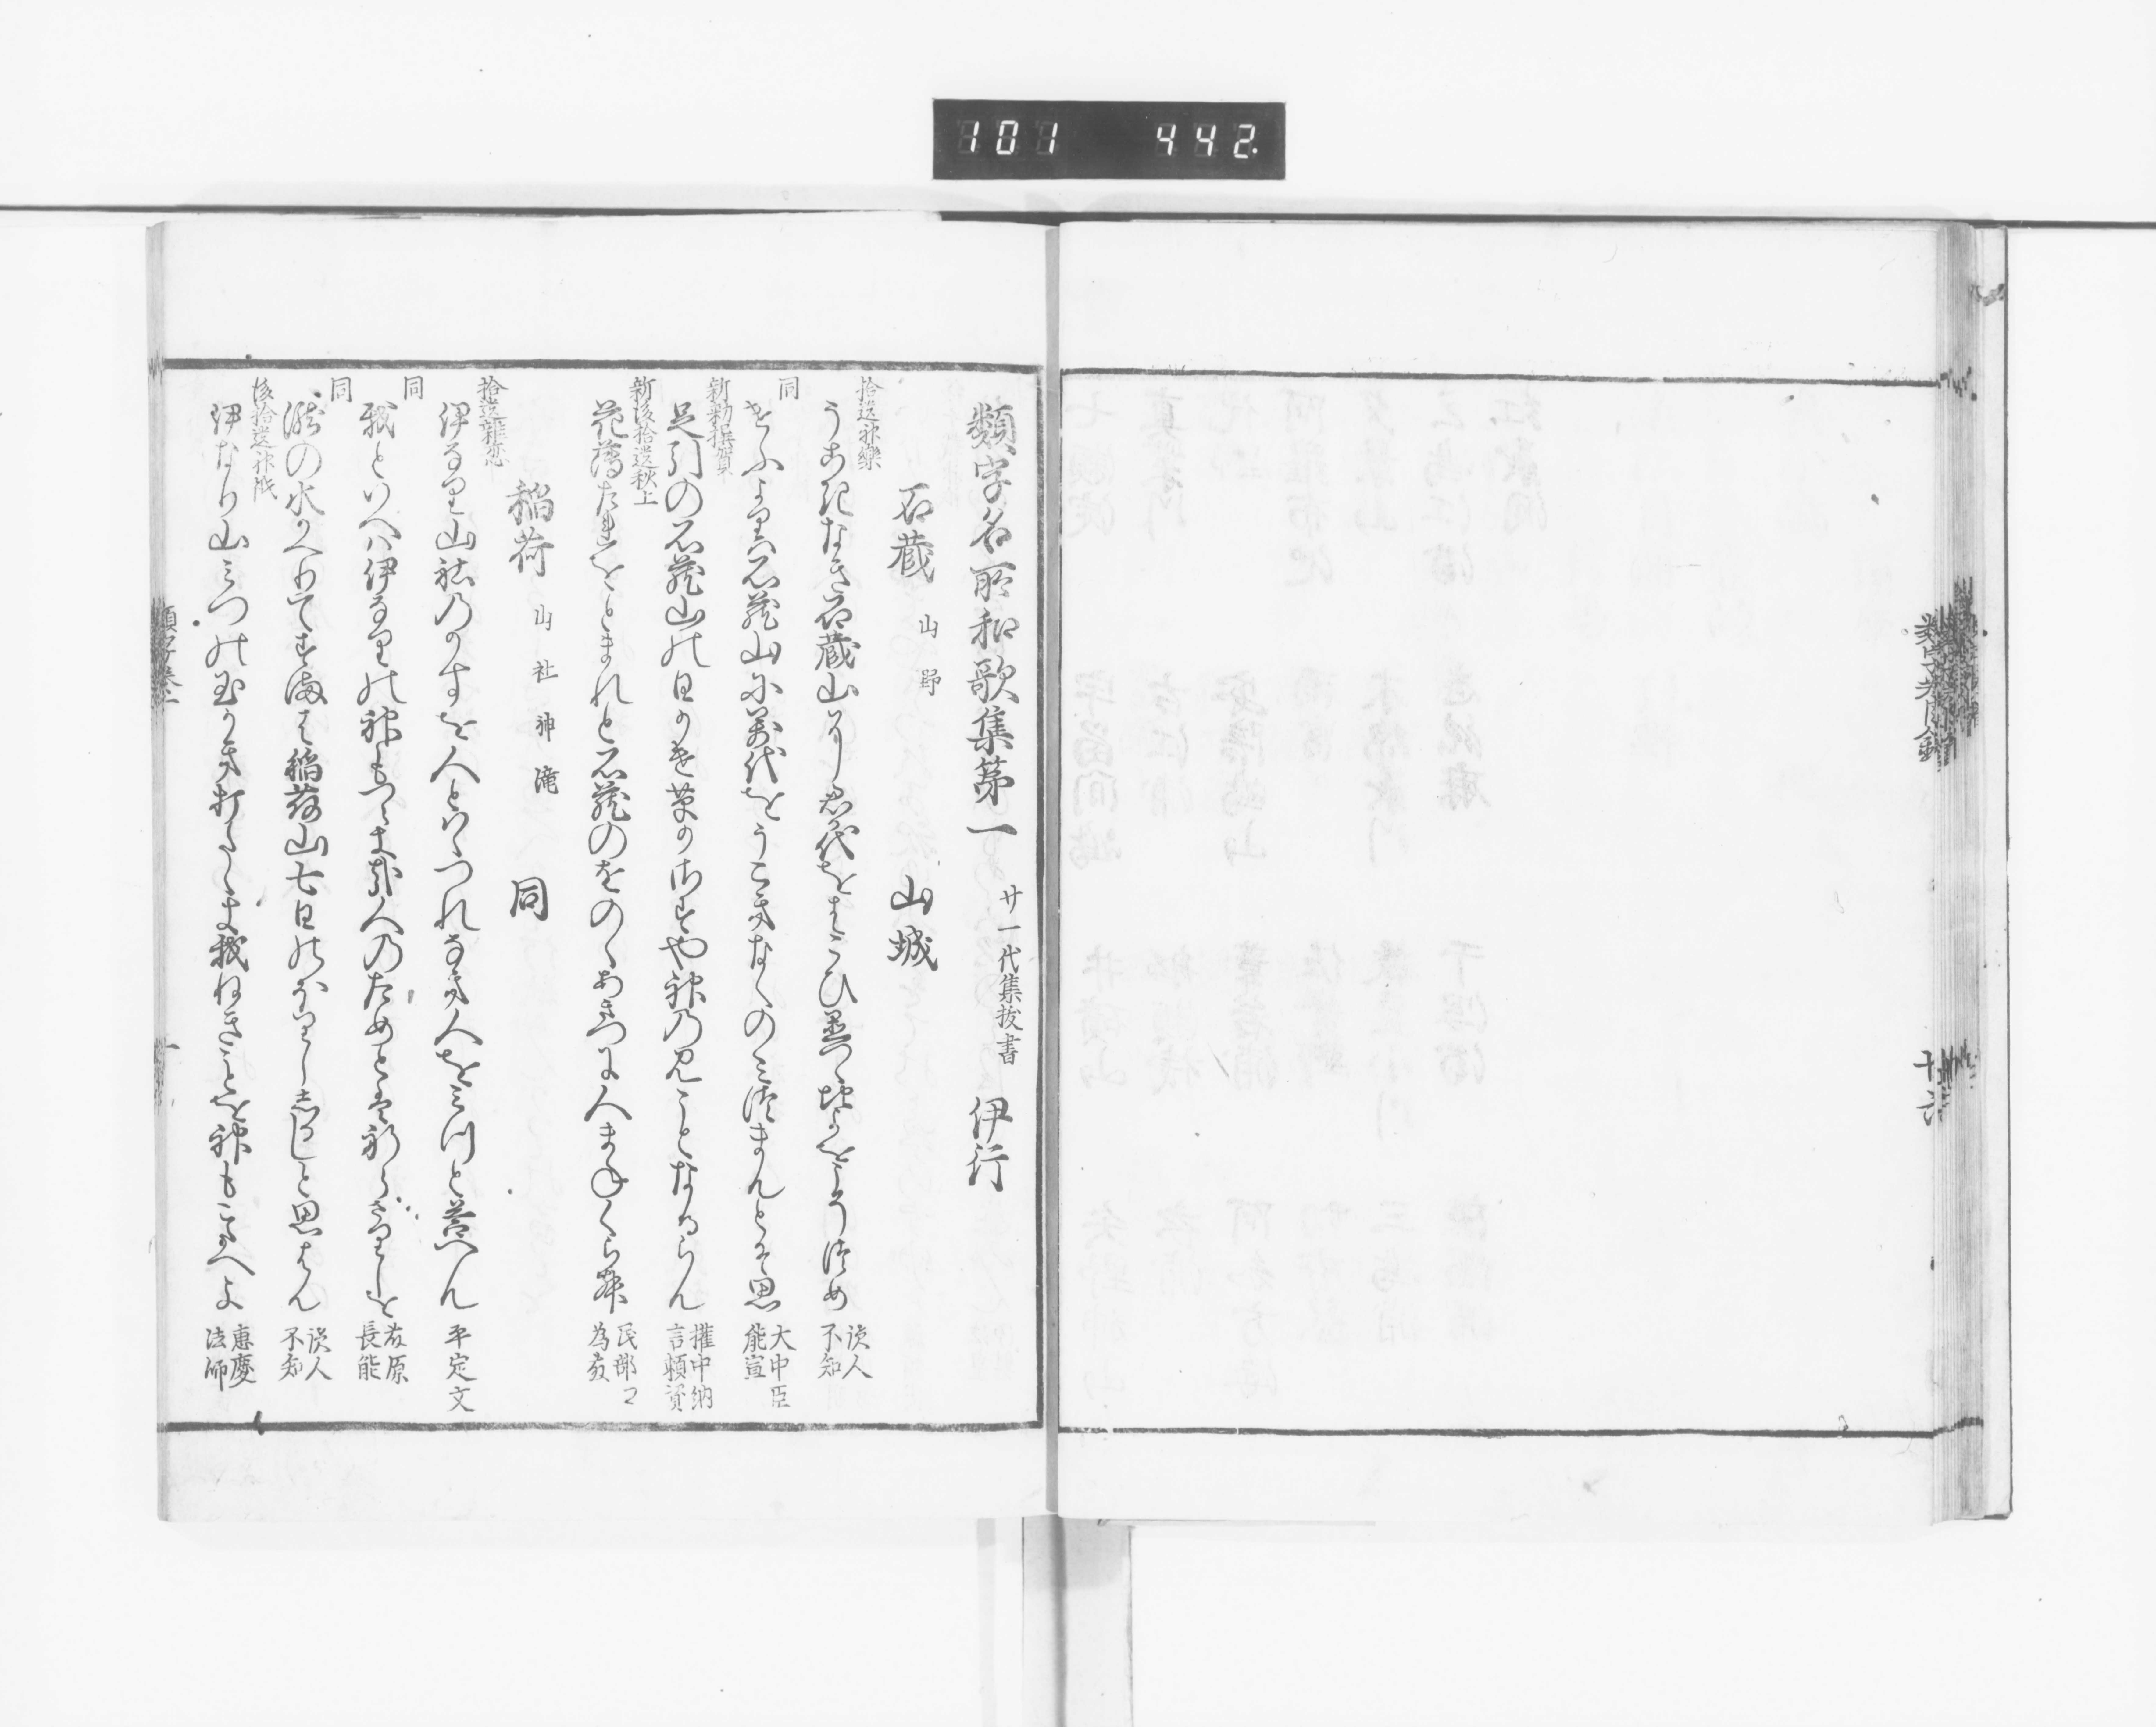 101 442
類字名所和歌集第一 廿一代集抜書 伊行
石蔵 山 野 山城
拾遺神樂
うこきなき石蔵山に君か代をはこひ置つゝ千世をこそつめ 読人不知
同
けふよりは石蔵山に万代をうこきなくのみつまんとそ思 大中臣能宣
新勅撰賀
足引の石蔵山の日かけ草かさすや神のみことなるらん 權中納言頼資
新後拾遺秋上
花薄たれをとまれと石蔵のをのゝあきつに人まねくらむ 民部卿為藤
稲荷 山 社 神 滝 同
拾遺雑恋
伊なり山社のかすを人とはゝつれなき人をみつと答へん 平定文
同
我といへは伊なりの神もつらき哉人のためとは祈らさりしを 藤原長能
同
瀧の水かへりてすまは稲荷山七日のほりししるしと思はん 読人不知
後拾遺神祇
伊なり山みつの玉かき打たゝき我ねきことを神もこたへよ 惠慶法師
類字巻一
一
十六